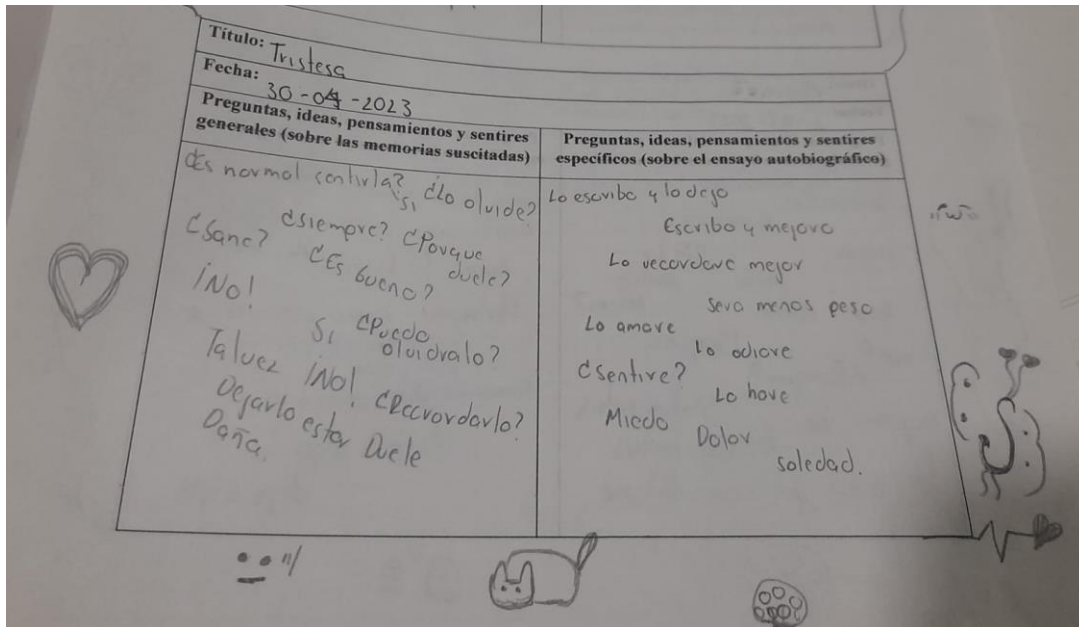 Título: Tristesa
Fecha: 30-04-2023
Preguntas, ideas, pensamientos y sentires
generales (sobre las memorias suscitadas)
¿Es normal sentirla? ¿Lo olvide?
Si
¿Sane? ¿siempre? ¿Porque
duele?
¡No! ¿Es bueno?
Si ¿Puedo
olvidralo?
Talvez ¡No! ¿Recrordarlo?
Dejarlo estar Duele
Daña.
Preguntas, ideas, pensamientos y sentires
específicos (sobre el ensayo autobiográfico)
Lo escribo y lo dejo
Escribo y mejoro
Lo recordare mejor
Sera menos peso
Lo amare
Lo odiare
¿Sentire?
Lo hare
Miedo
Dolor
soledad.